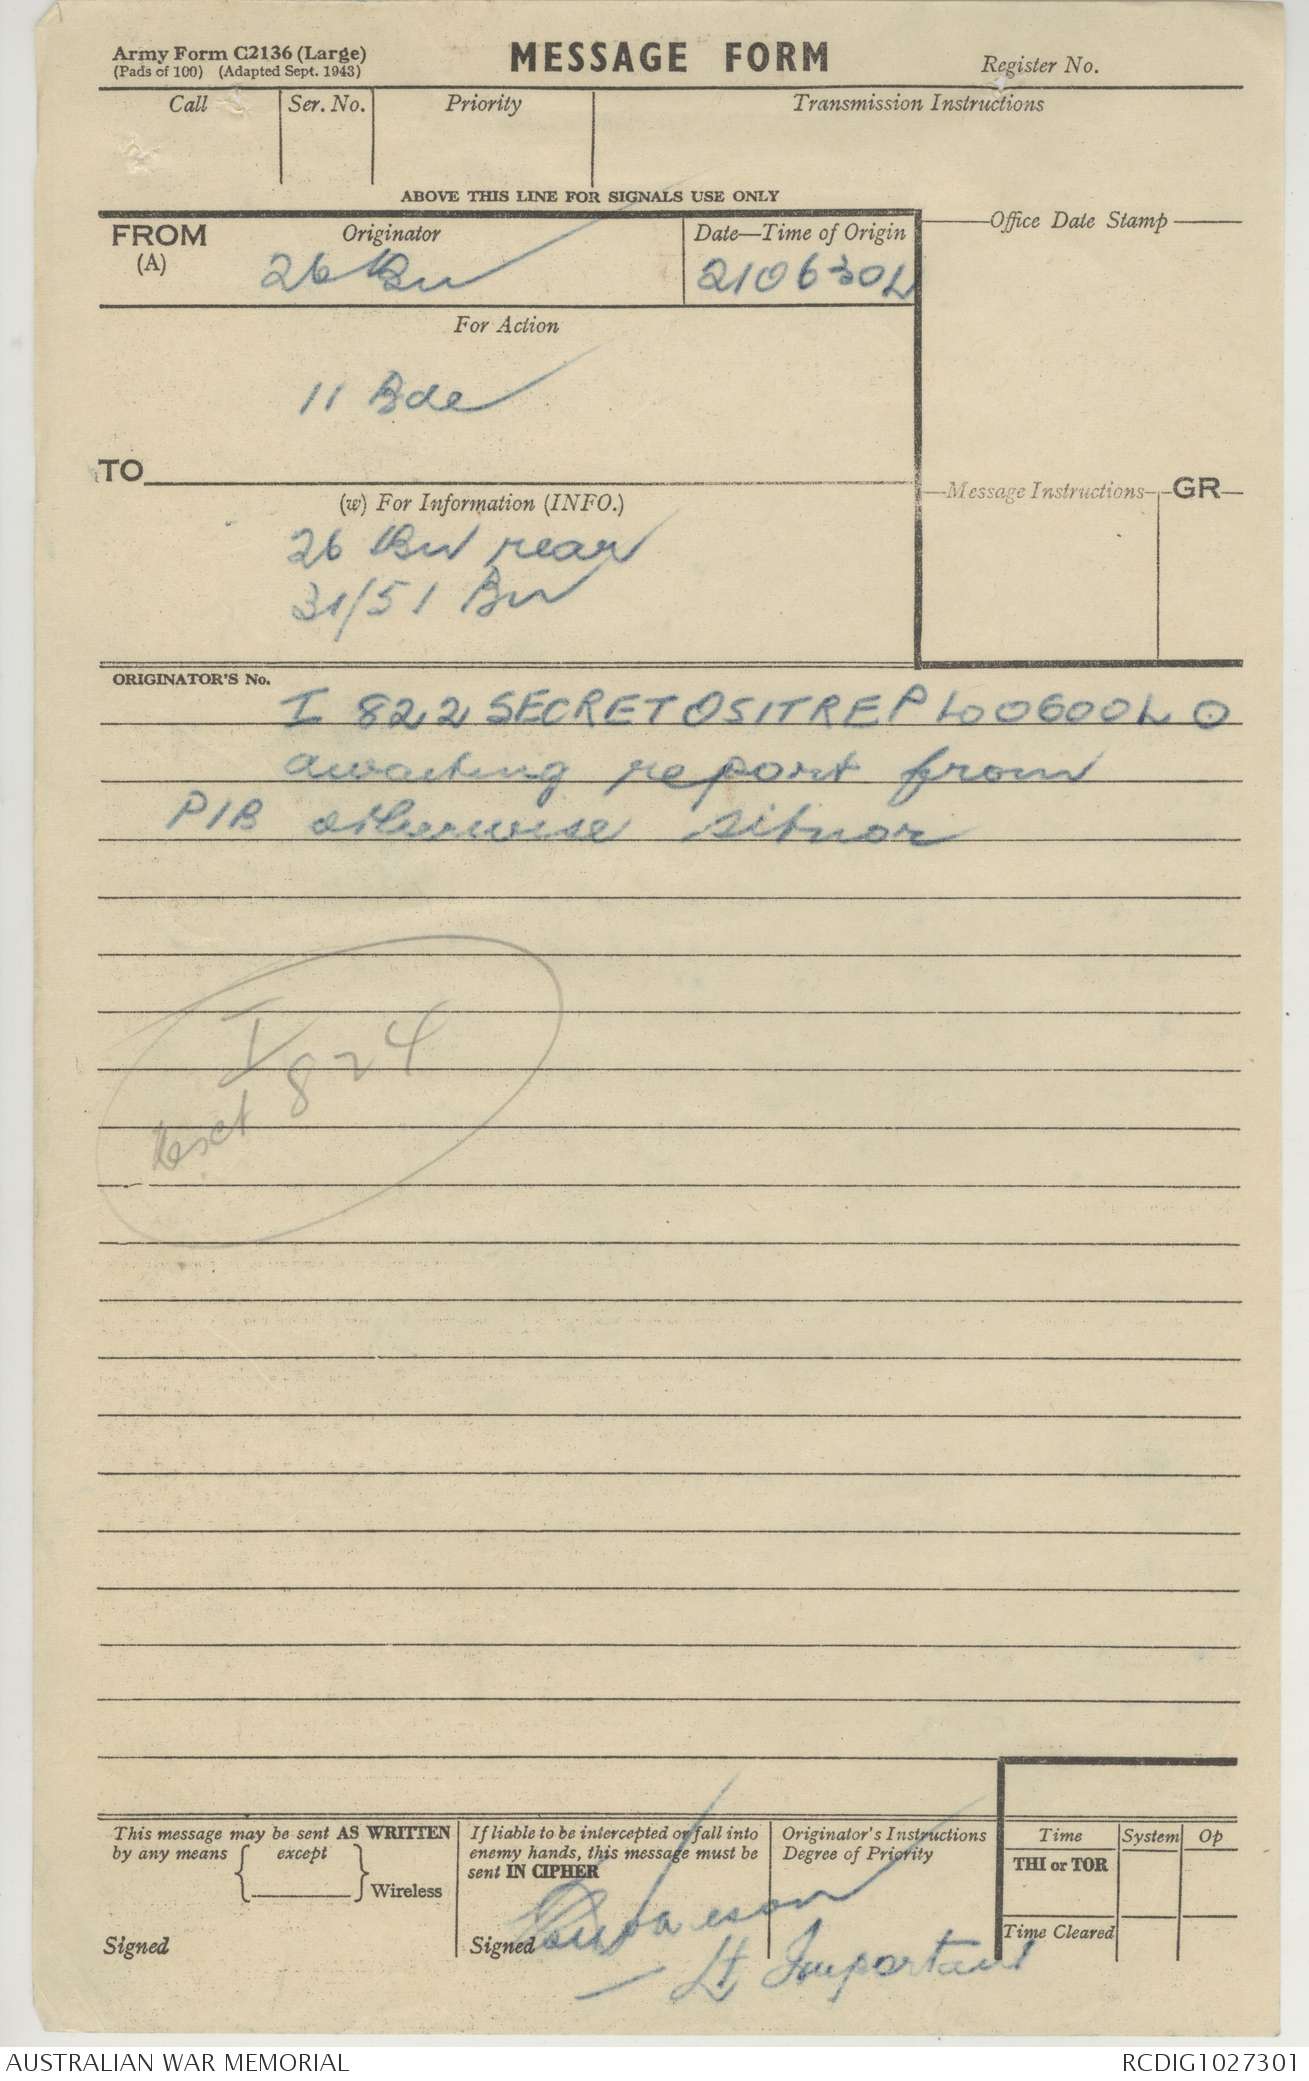 Army Form C2136 (Large)
(Pads of 100) (Adapted Sept. 1943)
MESSAGE FORM
Register No.
Call Ser. No. Priority Transmission Instructions
ABOVE THIS LINE FOR SIGNALS USE ONLY
FROM
(A)
Originator
26 Bn
Date—Time of Origin
210630L
Office Date Stamp
For Action
11 Bde
TO
(w) For Information (INFO.)
Message Instructions GR
26 Bn rear
31/51 Bn
ORIGINATOR'S No.
I 822 SECRET O SITREP to 0600L O
awaiting report from
PIB otherwise sitnor
I
824
This message may be sent AS WRITTEN
by any means except
Wireless
Signed
If liable to be intercepted or fall into
enemy hands, this message must be
sent IN CIPHER
Signed
Lt
Originator's Instructions
Degree of Priority
Important
Time System Op
THI or TOR
Time Cleared
AUSTRALIAN WAR MEMORIAL
RCDIG1027301